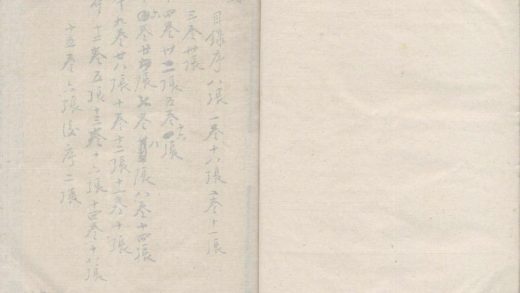 目録序八張 一巻十六張 二巻十一張
三巻廿張
四巻廿二張 五巻十六張
巻廿 張 七巻 張 八巻十四張
十九巻廿八張 十巻十二張 十一巻十張
十二巻五張 十三巻十六張 十四巻十六張
十五巻六張 後序二張